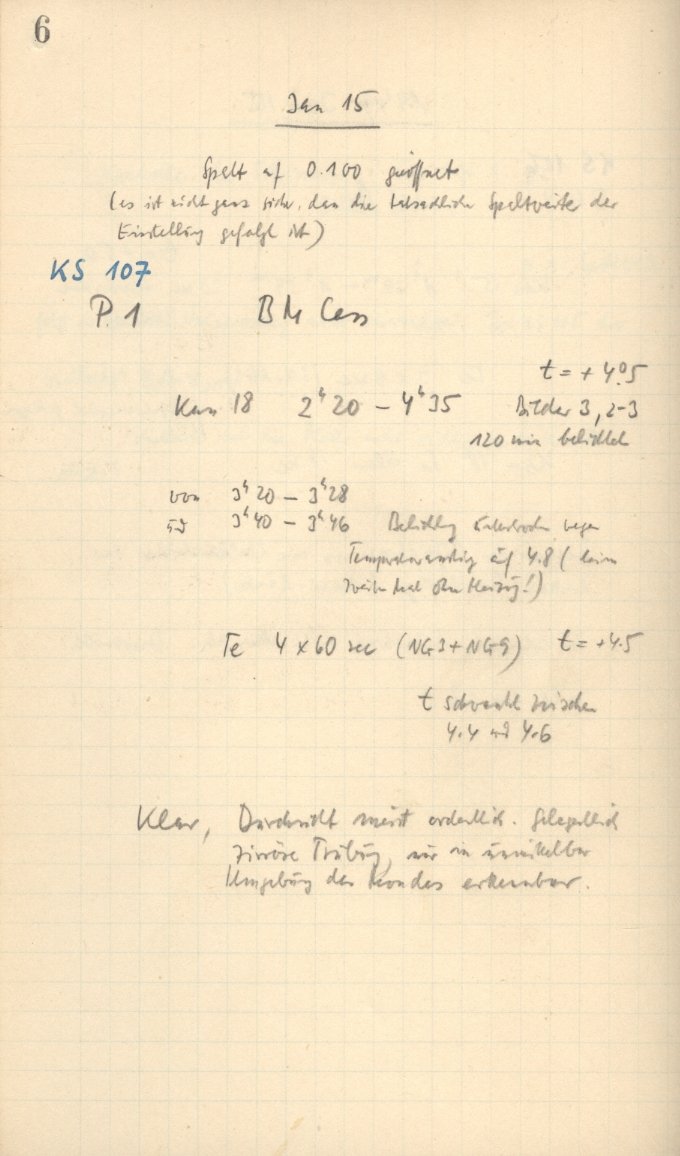 6
Jan 15
Spalt auf 0.100 geöffnet
(es ist nicht ganz sicher, dass die tatsächliche Spaltweite der
Einstellung gefolgt ist)
KS 107
P. 1 BM Cass
t = + 4°.5
Kass 18 2ʰ20 – 4ʰ35 Bilder 3, 2-3
120 min belichtet
von 3ʰ20 – 3ʰ28
und 3ʰ40 – 3ʰ46 Belichtung unterbrochen wegen
Temperaturanstieg auf 4.8 (beim
zweiten Mal ohne Heizung!)
Te 4 x 60 sec (NG3 + NG9) t = +4.5
t schwankte zwischen
4.4 und 4.6
Klar, Durchsicht meist ordentlich. Gelegentlich
zirröse Trübung, nur in unmittelbar
Umgebung des Mondes erkennbar.